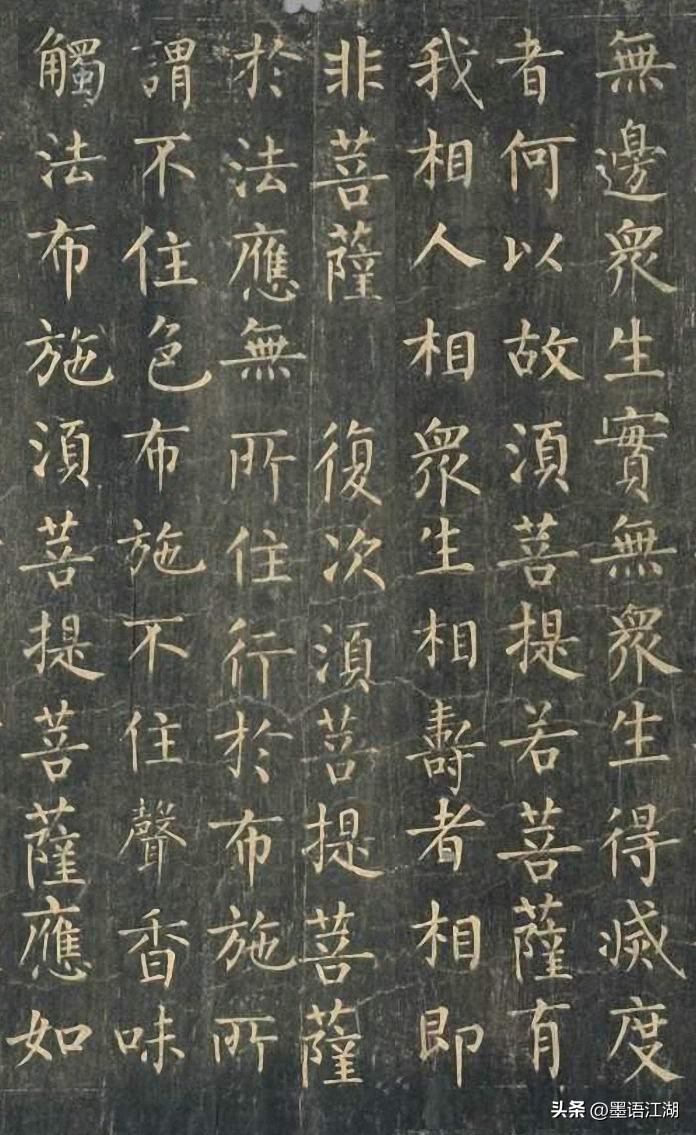 無邊眾生實無眾生得滅度
者何以故須菩提若菩薩有
我相人相眾生相壽者相即
非菩薩　復次須菩提菩薩
於法應無所住行於布施所
謂不住色布施不住聲香味
觸法布施須菩提菩薩應如
头条 @墨语江湖